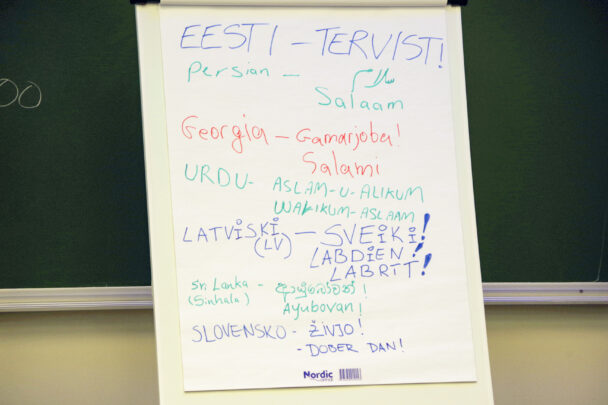 EESTI – TERVIST!
Persian – سلام
Salaam
Georgia – Gamarjoba!
Salami
URDU- ASLAM-U-ALIKUM
WALIKUM-ASLAAM
LATVISKI – SVEIKI!
(LV) LABDIEN!
LABRĪT!
Sri Lanka - ආයුබෝවන් !
(Sinhala) Ayubovan!
SLOVENSKO - ŽIVJO!
- DOBER DAN!
Nordic
00